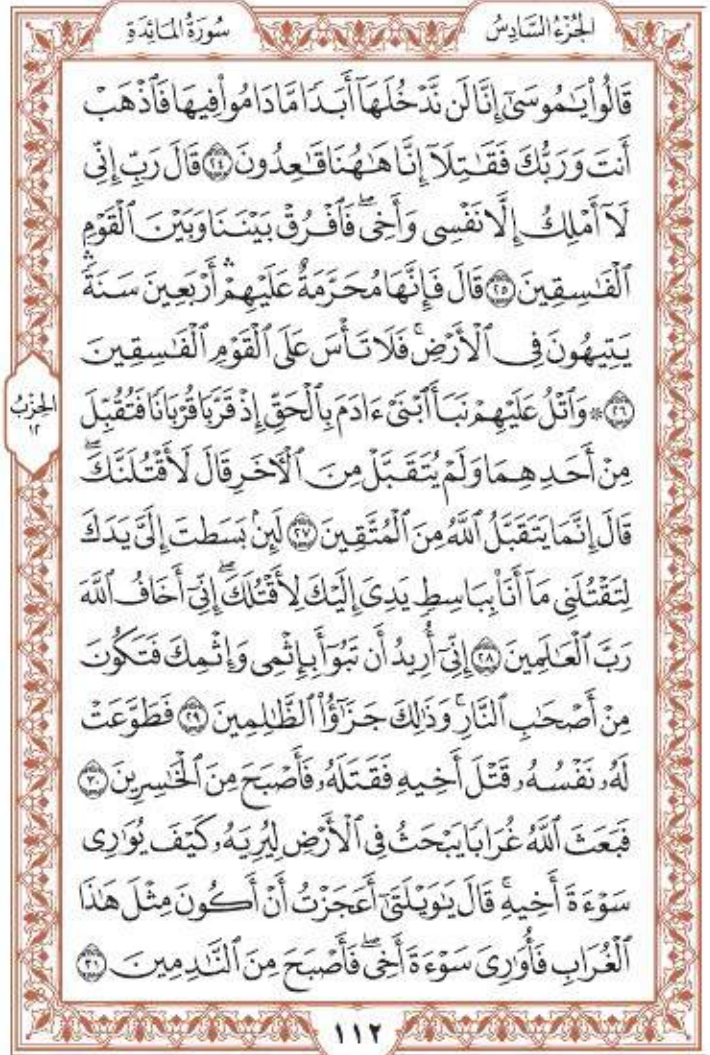 الجُزْءُ السَّادِسُ
سُورَةُ المَائِدَةِ
قَالُواْ يَٰمُوسَىٰٓ إِنَّا لَن نَّدْخُلَهَآ أَبَدٗا مَّا دَامُواْ فِيهَا فَٱذْهَبْ
أَنتَ وَرَبُّكَ فَقَٰتِلَآ إِنَّا هَٰهُنَا قَٰعِدُونَ ٢٤ قَالَ رَبِّ إِنِّي
لَآ أَمْلِكُ إِلَّا نَفْسِي وَأَخِيۖ فَٱفْرُقْ بَيْنَنَا وَبَيْنَ ٱلْقَوْمِ
ٱلْفَٰسِقِينَ ٢٥ قَالَ فَإِنَّهَا مُحَرَّمَةٌ عَلَيْهِمْۛ أَرْبَعِينَ سَنَةٗۛ
يَتِيهُونَ فِي ٱلْأَرْضِۚ فَلَا تَأْسَ عَلَى ٱلْقَوْمِ ٱلْفَٰسِقِينَ
٢٦ ۞ وَٱتْلُ عَلَيْهِمْ نَبَأَ ٱبْنَيْ ءَادَمَ بِٱلْحَقِّ إِذْ قَرَّبَا قُرْبَانٗا فَتُقُبِّلَ
مِنْ أَحَدِهِمَا وَلَمْ يُتَقَبَّلْ مِنَ ٱلْأٓخَرِ قَالَ لَأَقْتُلَنَّكَۖ
قَالَ إِنَّمَا يَتَقَبَّلُ ٱللَّهُ مِنَ ٱلْمُتَّقِينَ ٢٧ لَئِنۢ بَسَطتَ إِلَيَّ يَدَكَ
لِتَقْتُلَنِي مَآ أَنَا۠ بِبَاسِطٖ يَدِيَ إِلَيْكَ لِأَقْتُلَكَۖ إِنِّيٓ أَخَافُ ٱللَّهَ
رَبَّ ٱلْعَٰلَمِينَ ٢٨ إِنِّيٓ أُرِيدُ أَن تَبُوٓأَ بِإِثْمِي وَإِثْمِكَ فَتَكُونَ
مِنْ أَصْحَٰبِ ٱلنَّارِۚ وَذَٰلِكَ جَزَٰٓؤُاْ ٱلظَّٰلِمِينَ ٢٩ فَطَوَّعَتْ
لَهُۥ نَفْسُهُۥ قَتْلَ أَخِيهِ فَقَتَلَهُۥ فَأَصْبَحَ مِنَ ٱلْخَٰسِرِينَ ٣٠
فَبَعَثَ ٱللَّهُ غُرَابٗا يَبْحَثُ فِي ٱلْأَرْضِ لِيُرِيَهُۥ كَيْفَ يُوَٰرِي
سَوْءَةَ أَخِيهِۚ قَالَ يَٰوَيْلَتَىٰٓ أَعَجَزْتُ أَنْ أَكُونَ مِثْلَ هَٰذَا
ٱلْغُرَابِ فَأُوَٰرِيَ سَوْءَةَ أَخِيۖ فَأَصْبَحَ مِنَ ٱلنَّٰدِمِينَ ٣١
الحِزْبُ
١٢
١١٢